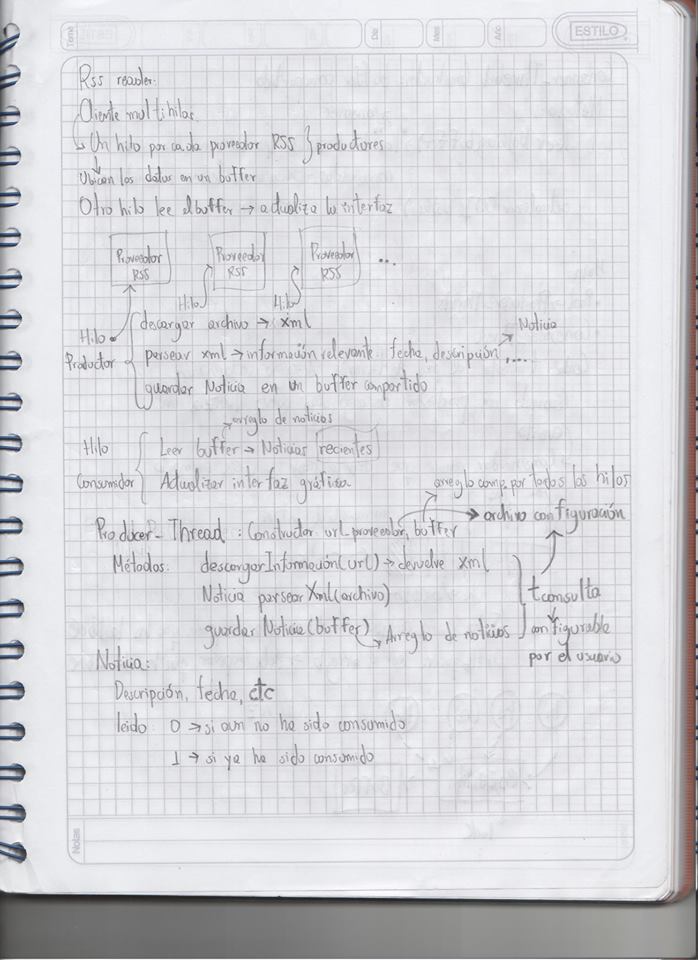 Tema
Día
Mes
Año
ESTILO
Rss reader.
Cliente multihilos.
Un hilo por cada proveedor RSS } productores
Ubican los datos en un buffer
Otro hilo lee el buffer → actualiza la interfaz
Proveedor RSS
Proveedor RSS
Proveedor RSS ...
Hilo
Hilo
Hilo Productor
descargar archivo → xml
Noticia
parsear xml → información relevante fecha, descripción, ....
guardar Noticia en un buffer compartido
arreglo de noticias
Hilo Consumidor
Leer buffer → Noticias recientes
Actualizar interfaz gráfica
arreglo comp. por todos los hilos
archivo configuración
Producer-Thread : Constructor url-proveedor, buffer
Métodos: descargarInformación(url) → devuelve xml
Noticia parsear Xml(archivo)
t consulta
guardar Noticia(buffer) → Arreglo de noticias
configurable
por el usuario
Noticia:
Descripción, fecha, etc
leido 0 → si aun no ha sido consumido
1 → si ya ha sido consumido
Notas